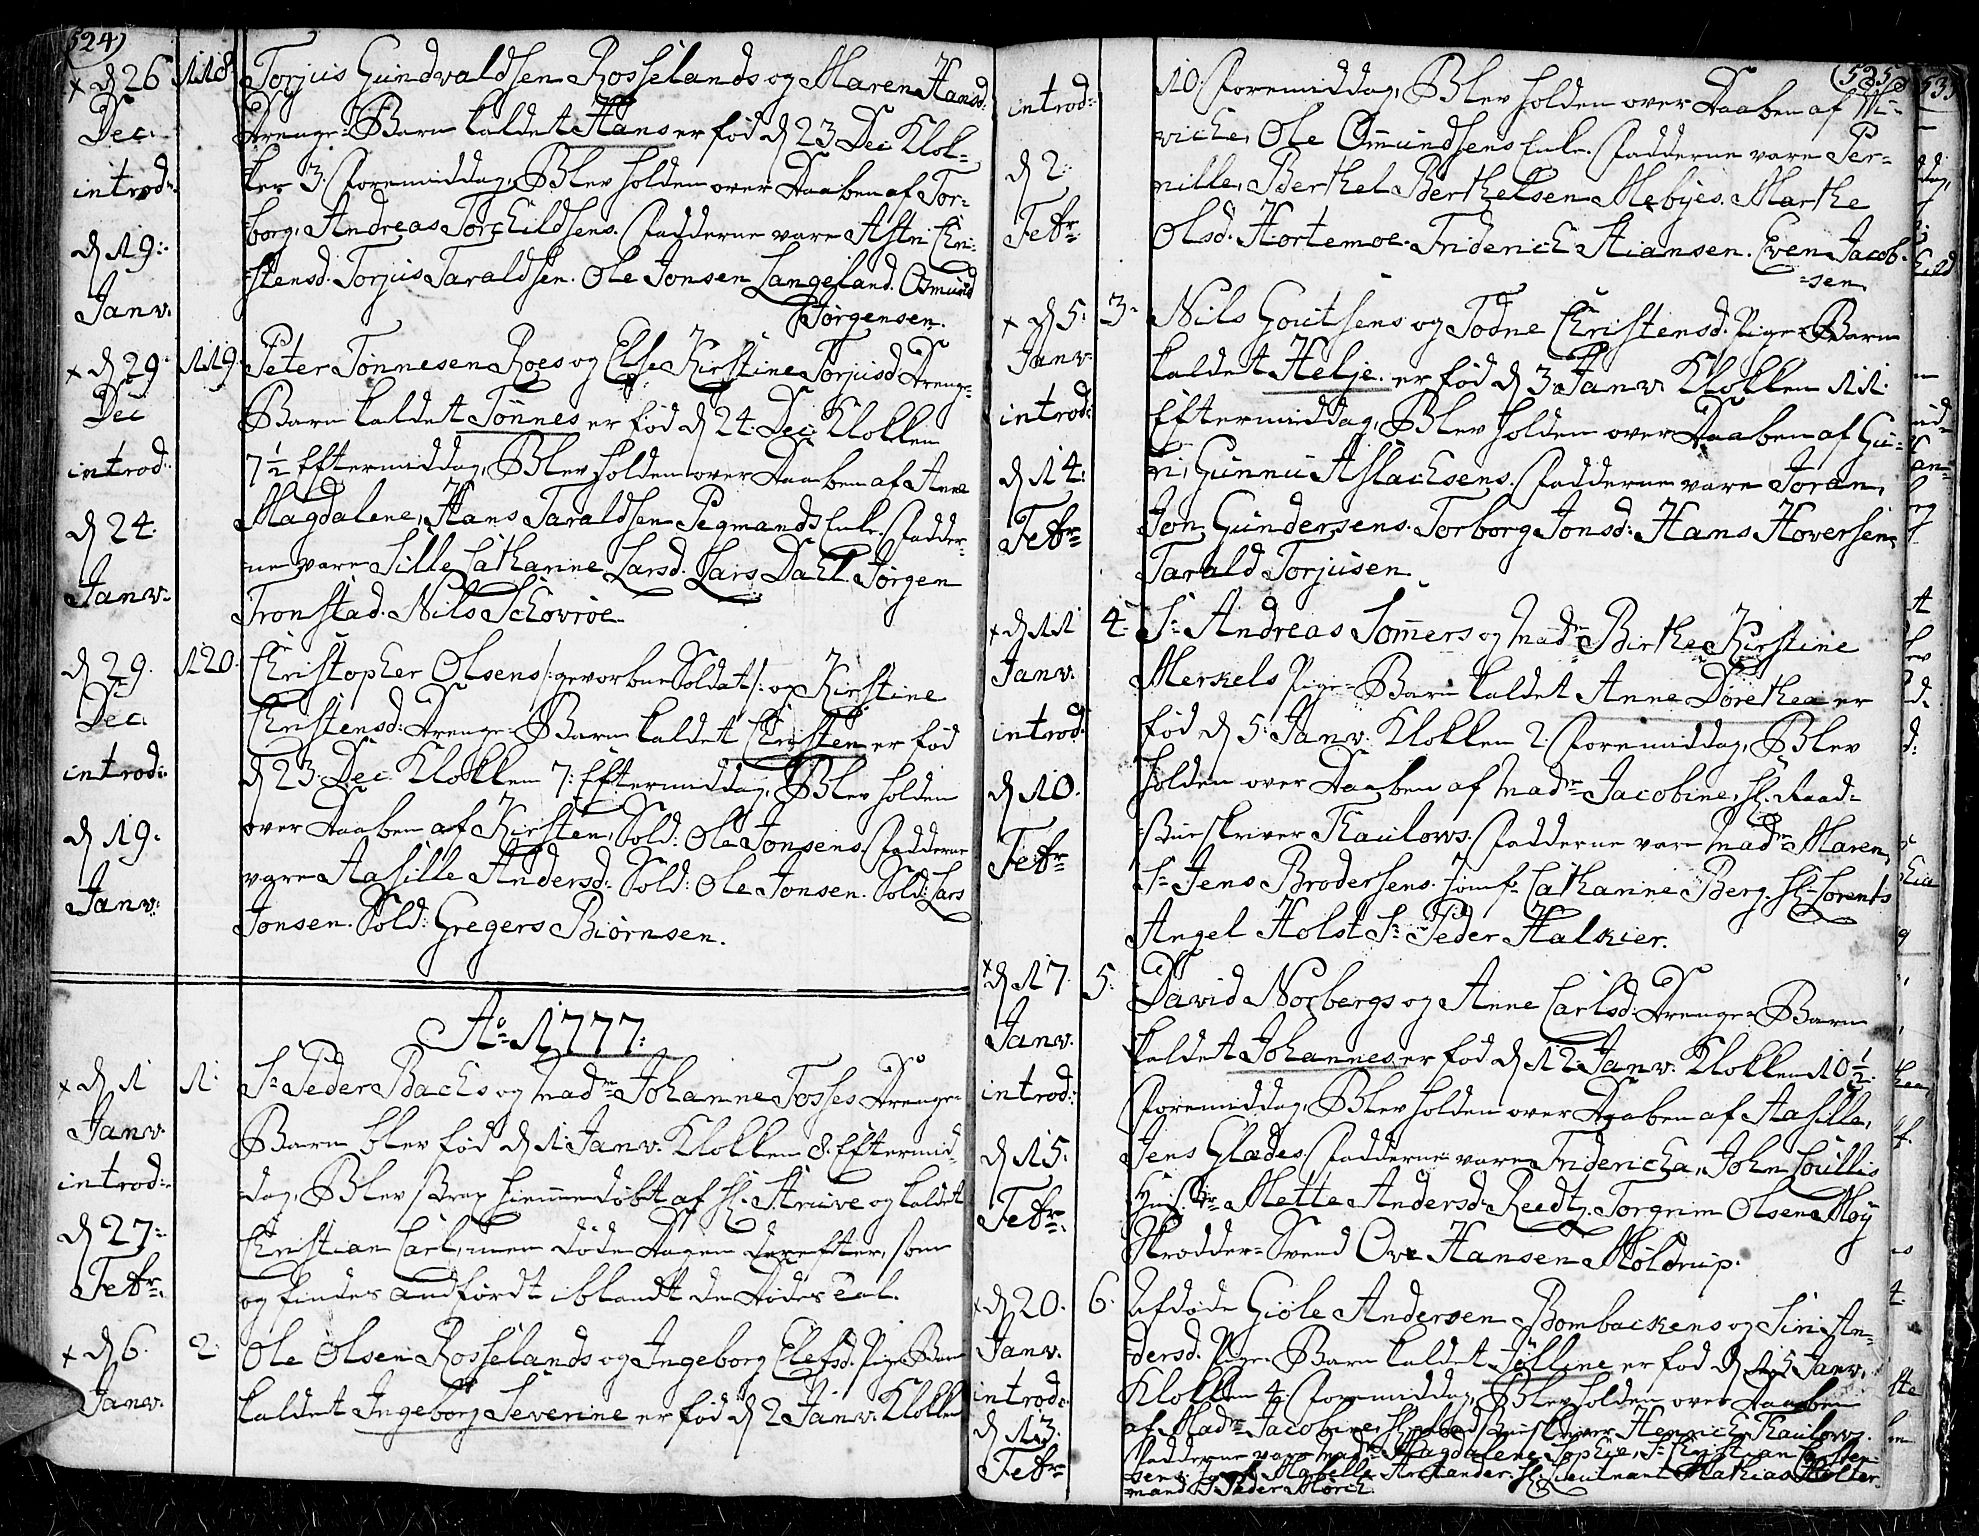 524)
x d 26 Dec. introd: d 19: Janv.
118. Torjus Gundvaldsen Rosselands og Maren Hansd:
Drenge-Barn kaldet Hans er fød d 23 Dec Klok-
ker 3. Formiddag, Blev holden over Daaben af Tor-
borg, Andreas Torchildsens. Fadderne vare Astri Chri-
stensd. Torjus Taraldsen. Ole Jonsen Langeland. Osmund
Jørgensen.
x d 29. Dec introd: d 24. Janv.
119. Peter Tönnesen Roes og Else Kirstine Torjusd Dreng-
Barn kaldet Tönnes er fød d 24. Dec: Klokken
7 1/2 Eftermiddag, Blev holden over Daaben af Anne
Magdalene, Hans Taraldsen Pegmands Enke. Fadder-
ne vare Sille Catharine Larsd. Lars Dahl. Jørgen
Tronstad. Nils Schovroe.
d 29. Dec. introd: d 19. Janv:
120. Christopher Olsens /: gevorbne Soldat :/ og Kirstine
Christensd: Drenge-Barn kaldet Christen er fød
d 23. Dec Klokken 7: Eftermiddag, Blev holden
over Daaben af Kirsten, Sold: Ole Jonsens. Fadderne
vare Aasille Andersd: Sold: Ole Jonsen. Sold: Lars
Jonsen. Sold: Gregers Biörnsen.
Ao 1777:
x d 1 Janv. introd: d 27: Febr.
1: Sr Peder Bachs og Madm Johanne Fosses Drenge-
Barn blev fød d 1 Janv. Klokken 8. Eftermid-
dag, Blev strax hiemmedøbt af Hr. Struve og kaldet
Christian Carl, men døde Dagen derefter, som
og findes andførdt iblandt de Dødes Tal.
x d 6. Janv.
2: Ole Olsen Rosselands og Ingeborg Elefsd. Pige-Barn
kaldet Ingeborg Severine er fød d 2 Janv. Klokken
(525)
introd: d 2. Febr.
10. Formiddag, Blev holden over Daaben af Wi-
viche, Ole Omundsens Enke. Fadderne vare Per-
nille, Berthel Berthelsen Mebyes. Marthe
Olsd. Hortemoe. Friderich Stiansen. Even Jacob-
sen.
x d 5. Janv. introd: d 14: Febr
3. Nils Goutsens og Todne Christensd. Pige-Barn
kaldet Helje er fød d 3. Janv. Klokken 11.
Eftermiddag, Blev holden over Daaben af Gu-
ri, Gunnu Aslachsens. Fadderne vare Joran,
Jon Gundersens. Torborg Jonsd: Hans Hoversen.
Tarald Torjusen.
x d 11 Janv. introd: d 10. Febr
4. Sr Andreas Sommers og Madm Birthe Kirstine
Merkels Pige-Barn kaldet Anne Dorethea er
fød d 5. Janv. Klokken 2. Formiddag, Blev
holden over Daaben af Madm Jacobine, Hr. Raad-
stueskriver Thaulows. Fadderne vare Madm Maren,
Sr Jens Brodersens. Jomfr Catharine Berg. Hr Lorents
Angel Holst Sr Peder Halkier.
x d 17 Janv. introd: d 15. Febr.
5. David Norbergs og Anne Carlsd: Drenge-Barn
kaldet Johannes er fød d 12 Janv. Klokken 10 1/2
Formiddag, Blev holden over Daaben af Aasille,
Jens Glades. Fadderne vare Fridericha, John Coullis
Hustr. Mette Andersd Reedtz. Torgrim Olsen Moy
Skrædder-Svend Ove Hansen Möldrup.
x d 20. Janv. introd: d 13. Febr
6. Afdøde Giøle Andersen Bombackens og Siri An-
dersd. Pige-Barn kaldet Jölline er fød d 15 Janv.
Klokken 4. Formiddag, Blev holden over Daaben
af Madm Jacobine, Hr Raadstueskriver Henrich Thaulows.
Fadderne vare Madm Magdalene Sophie, Sr Christian Carsten-
sens. Jomfr Mabelle Archander. Hr Lieutnant Mathias Molter-
mand Sr Peder Mörch.